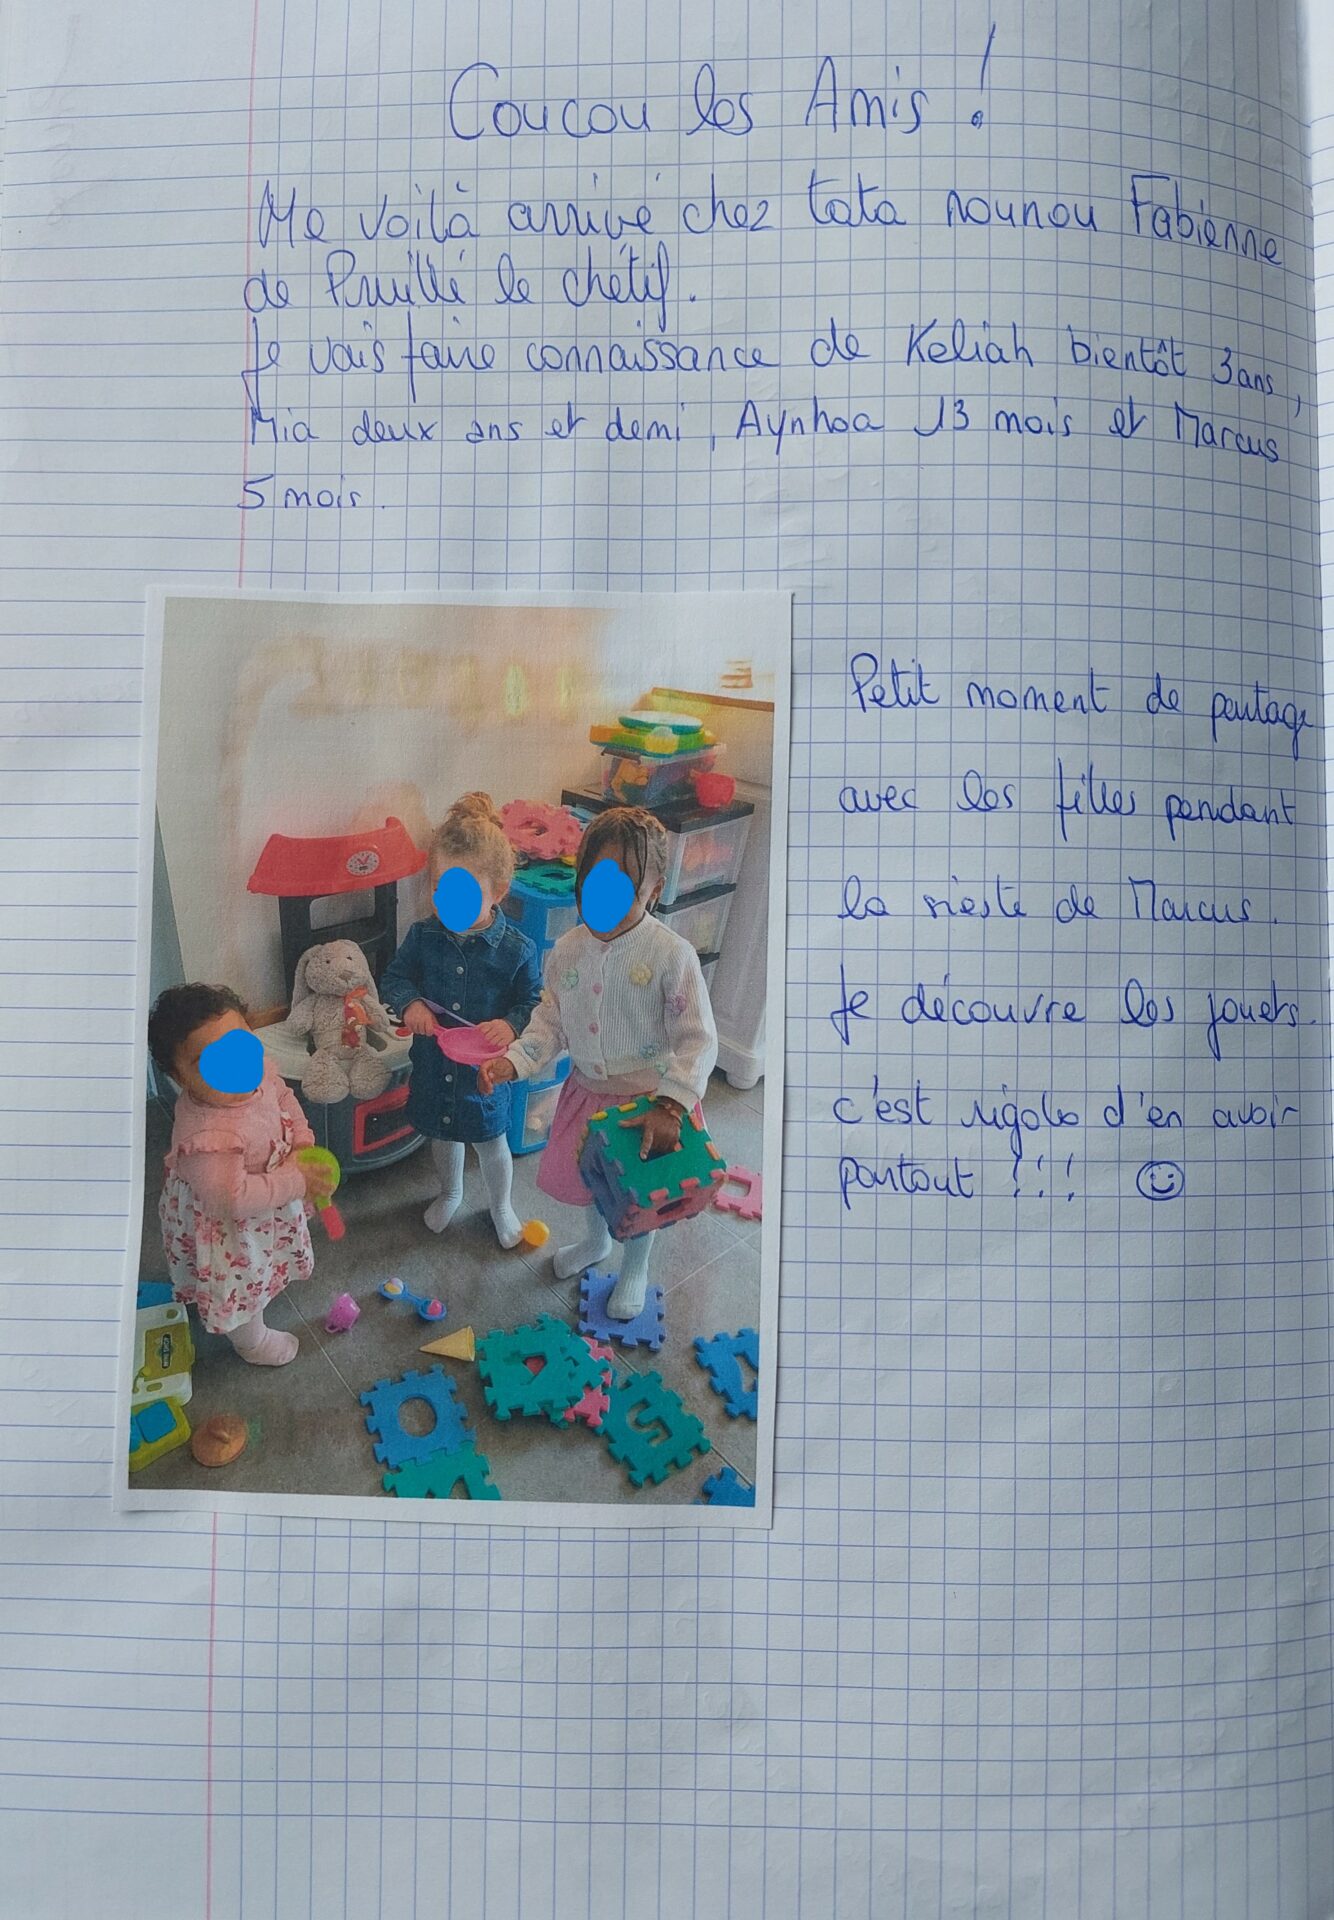 Coucou les Amis !
Me voilà arrivé chez tata nounou Fabienne
de Pruillé le chétif.
Je vais faire connaissance de Keliah bientôt 3 ans,
Mia deux ans et demi, Aynhoa 13 mois et Marcus
5 mois.
Petit moment de partage
avec les filles pendant
la sieste de Marcus.
Je découvre les jouets.
c'est rigolo d'en avoir
partout !!!